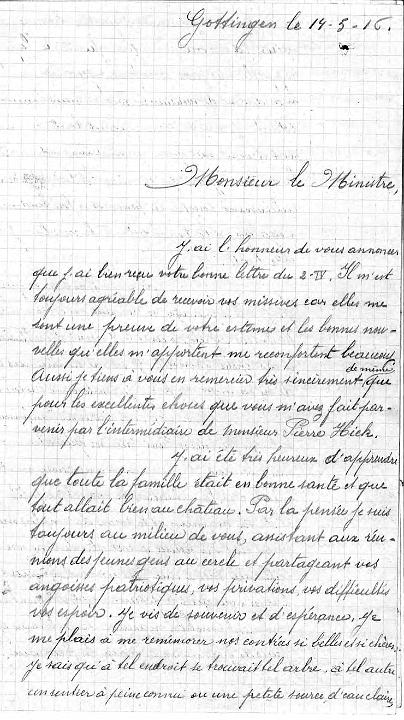 Gottingen le 14-5-16.
Monsieur le Ministre,
J'ai l'honneur de vous annoncer
que j'ai bien reçu votre bonne lettre du 2-IV. Il m'est
toujours agréable de recevoir vos missives car elles me
sont une preuve de votre estime et les bonnes nou-
velles qu'elles m'apportent me réconfortent beaucoup
de même
Aussi je tiens à vous en remercier très sincèrement, que
pour les excellentes choses que vous m'avez fait par-
venir par l'intermédiaire de Monsieur Pierre Hick.
J'ai été très heureux d'apprendre
que toute la famille était en bonne santé et que
tout allait bien au château. Par la pensée je suis
toujours au milieu de vous, assistant aux réu-
nions des jeunes gens au cercle et partageant vos
angoisses patriotiques, vos privations, vos difficultés
vos espoir. Je vis de souvenir et d'espérance, Je
me plais à me remémorer nos contrées si belles et si chères.
Je sais qu'à tel endroit se trouvait tel arbre, à tel autre
un sentier à peine connu ou une petite source d'eau claire